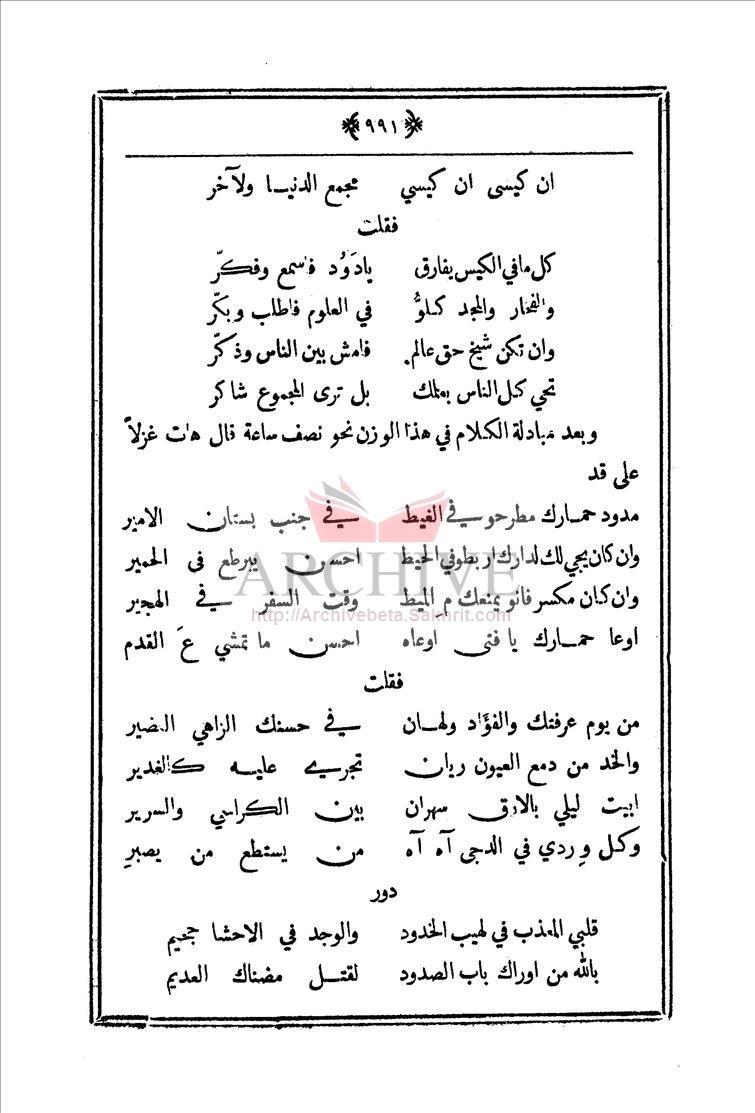 ﴿٩٩١﴾
ان كيسى ان كيسي مجمع الدنيا ولآخر
فقلت
كل مافي الكيس يفارق ياداوُد فاسمع وفكّر
والفخار والمجد كلوُّ في العلوم فاطلب وبكّر
وان تكن شيخ حق عالم. فامش بين الناس وذكّر
تحي كل الناس بعلمك بل ترى المجموع شاكر
وبعد مبادلة الكلام في هذا الوزن نحو نصف ساعة قال هات غزلاً
على قد
مدود حمارك مطرحو في الغيط في جنب بستان الامير
وان كان يجي لك لدارك اربطو في الحيط احسن يبرطع فى الحمير
وان كان مكسر فانو يمنعك م الميط وقت السفر في الهجير
اوعا حمارك يا فتى اوعاه احسن ما تمشي عَ القدم
فقلت
من يوم عرفتك والفؤاد ولهان في حسنك الزاهي النضير
والخد من دمع العيون ريان تجري عليه كالغدير
ابيت ليلي بالارق سهران بين الكراسي والسرير
وكل وِردي في الدجى آه آه من يستطع من يصبرِ
دور
قلبي المعذب في لهيب الخدود والوجد في الاحشا جحيم
بالله من اوراك باب الصدود لقتل مضناك العديم
ARCHIVE
http://Archivebeta.Sakhrit.com